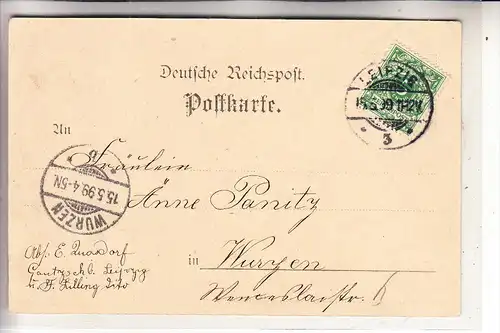 Deutsche Reichspost.
Postkarte.
LEIPZIG
15.5.99.11-12V.
3
An
Fräulein
Änne Panitz
WURZEN
15.5.99.4-5N.
Abs. E. Quasdorf
Gautzsch b. Leipzig
u. F. Zilling dito
in Wurzen
Wenceslaistr. 6